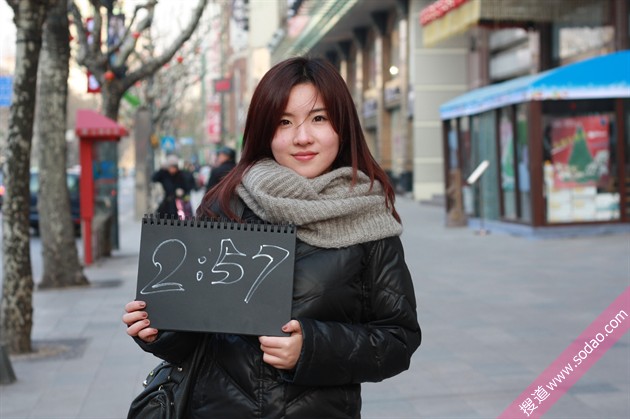 2:57
搜道www.sodao.com